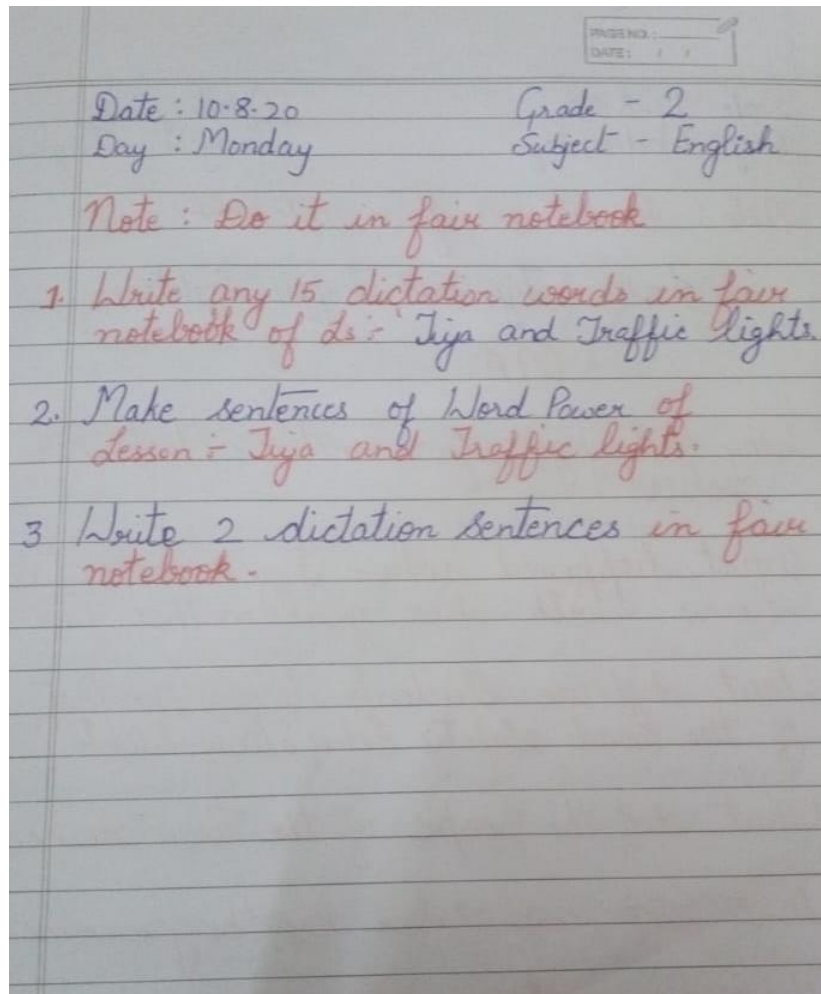 PAGE NO.:
DATE: / /
Date : 10.8.20 Grade - 2
Day : Monday Subject - English
Note : Do it in fair notebook
1. Write any 15 dictation words in fair
notebook of Ls :- Jija and Traffic lights.
2. Make sentences of Word Power of
Lesson :- Jija and Traffic lights.
3 Write 2 dictation sentences in fair
notebook.